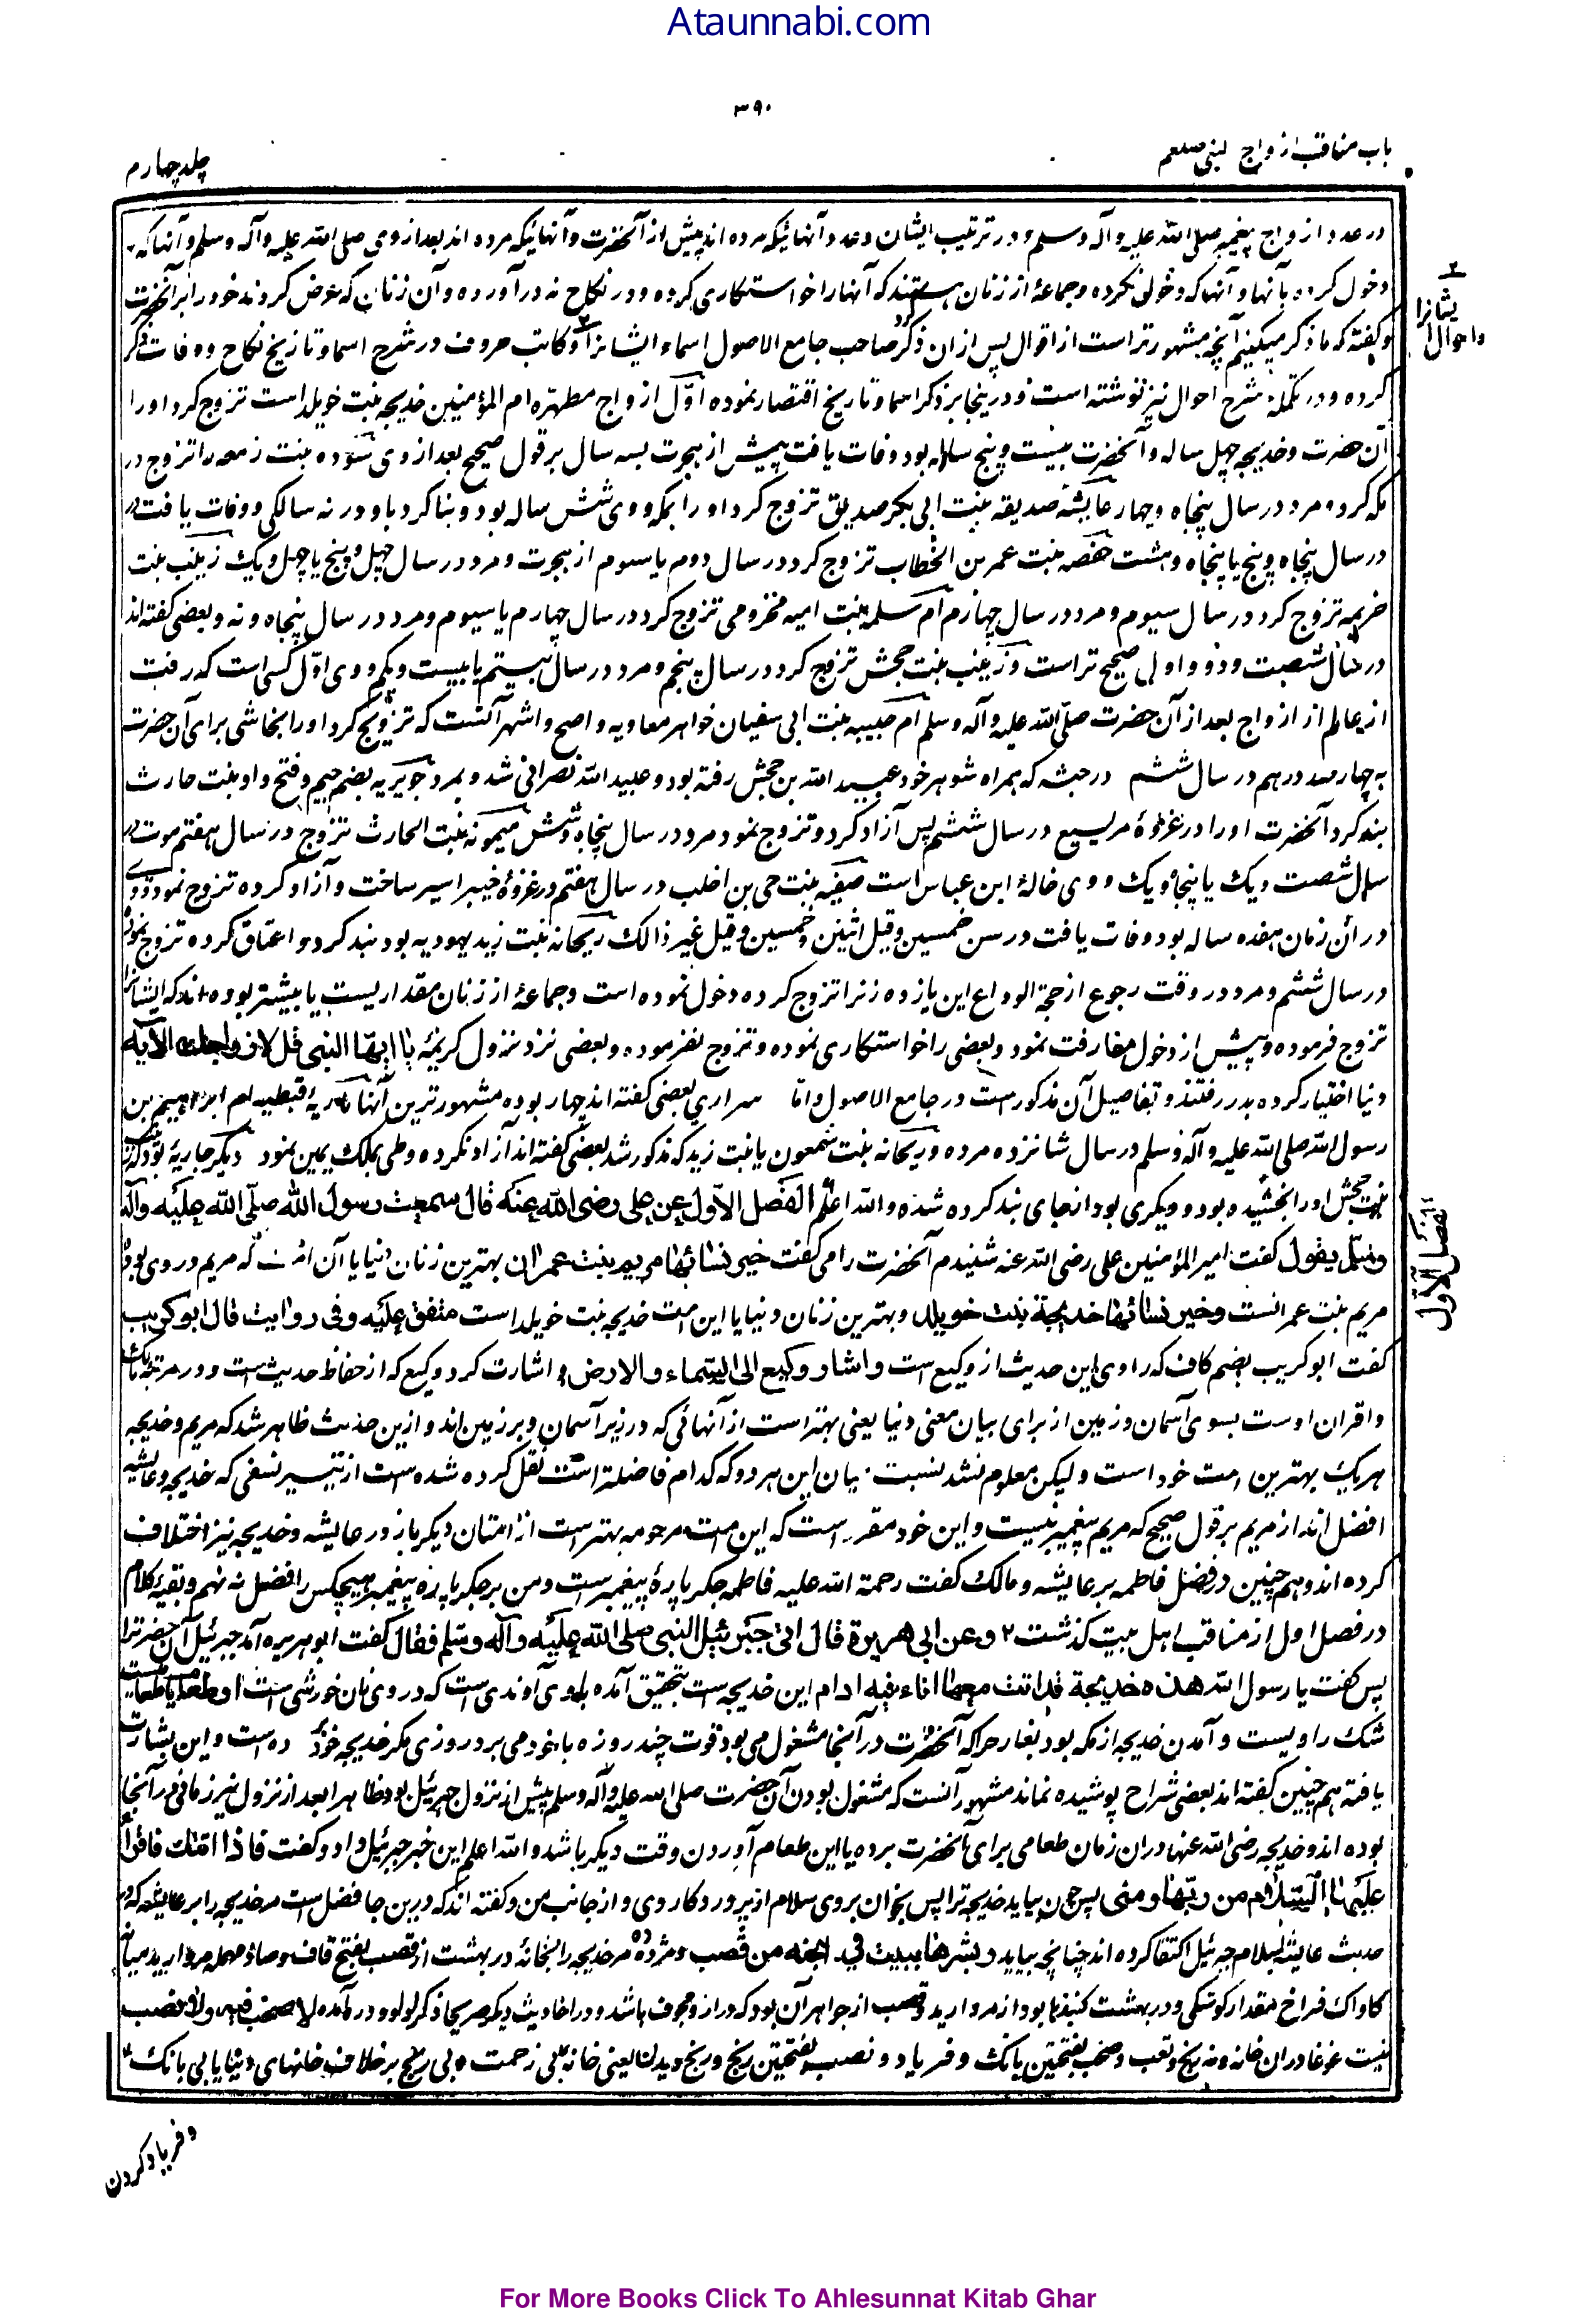 Ataunnabi.com
۳۹۰
باب مناقب ازواج النبی صلعم
جلد چہارم
در عدد ازواج پیغمبر صلی اللہ علیہ وآلہ وسلم و در ترتیب ایشان و عدد آنہائیکہ مردہ اند پیش از آنحضرت و آنہائیکہ مردہ اند بعد از وی صلی اللہ علیہ وآلہ وسلم و آنہا کہ
دخول کردہ بآنہا و آنہا کہ دخول نکردہ و جماعۂ از زنان ہستند کہ آنہا را خواستگاری کردہ و در نکاح نہ درآوردہ و آن زنان کہ عرض کردند خود را بر آنحضرت
و گفتہ کہ ما ذکر میکنیم آنچہ مشہورتر است از اقوال پس ازان ذکر کرد صاحب جامع الاصول اسماء ایشانرا و کاتب حروف در شرح اسما و تاریخ نکاح و وفات ذکر
کردہ و در تکملہ شرح احوال نیز نوشتہ است و درینجا بر ذکر اسما و تاریخ اقتصار نمودہ اوّل ازواج مطہرہ ام المؤمنین خدیجہ بنت خویلد است تزوج کرد او را
آن حضرت و خدیجہ چہل سالہ و آنحضرت بیست و پنج سالہ بود وفات یافت پیش از ہجرت بسہ سال بر قول صحیح بعد از وی سَوْدہ بنت زمعہ را تزوج در
مکہ کردہ مرد در سال پنجاہ و چہار عایشہ صدیقہ بنت ابی بکر صدیق تزوج کرد او را بمکہ و وی شش سالہ بود و بنا کرد باو در نہ سالگی و وفات یافت
در سال پنجاہ و پنج یا پنجاہ و ہشت حفصہ بنت عمر بن الخطاب تزوج کرد در سال دوم یا سوم از ہجرت و مرد در سال چہل و پنج یا چہل و یک زینب بنت
خزیمہ تزوج کرد در سال سیوم و مرد در سال چہارم ام سلمہ بنت امیہ مخزومی تزوج کرد در سال چہارم یا سیوم و مرد در سال پنجاہ و نہ و بعضی گفتہ اند
در سال شصت و دو و اولی صحیح تر است و زینب بنت جحش تزوج کرد در سال پنجم و مرد در سال بیستم یا بیست و یکم و وی اوّل کسی است کہ رفت
ازیعالم از ازواج بعد از آن حضرت صلّی اللہ علیہ وآلہ وسلم ام حبیبہ بنت ابی سفیان خواہر معاویہ و اصح و اشہر آنست کہ تزویج کرد او را نجاشی برای آن حضرت
بہ چہار صد درہم در سال ششم در حبشہ کہ ہمراہ شوہر خود عبید اللہ بن جحش رفتہ بود و عبید اللہ نصرانی شد و بمرد جویریہ بضم جیم و فتح واو بنت حارث
بند کرد آنحضرت او را در غزوۂ مریسیع در سال ششم پس آزاد کرد و تزوج نمود و مرد در سال پنجاہ و شش میمونہ بنت الحارث تزوج در سال ہفتم موت در
سال شصت و یک یا پنجاہ و یک و وی خالۂ ابن عباس است صفیہ بنت حی بن اخطب در سال ہفتم در غزوۂ خیبر اسیر ساخت و آزاد کردہ تزوج نمود و وی
در ان زمان ہفدہ سالہ بود وفات یافت در سن خمسین و قیل اثنین و خمسین و قیل غیر ذالک ریحانہ بنت زید یہودیہ بود بند کرد و اعتاق کردہ تزوج نمود
در سال ششم و مرد در وقت رجوع از حجۃ الوداع این یازدہ زنرا تزوج کردہ دخول نمودہ است و جماعۂ از زنان مقدار بیست یا بیشتر بودہ اند کہ ایشانرا
تزوج فرمودہ و پیش از دخول مفارقت نمود و بعضی را خواستگاری نمودہ و تزوج نفرمودہ و بعضی نزد نزول کریمۂ یا ایہا النبی قل لازواجک الآیہ
دنیا اختیار کردہ بدر رفتند و تفاصیل آن مذکورست در جامع الاصول و اما سراری بعضی گفتہ اند چہار بودہ مشہورترین آنہا ماریۂ قبطیہ ام ابراہیم بن
رسول اللہ صلی اللہ علیہ وآلہ وسلم در سال شانزدہ مردہ و ریحانہ بنت شمعون یا بنت زید کہ مذکور شد بعضی گفتہ اند آزاد نکردہ و وطی بملک یمین نمود دیگر جاریۂ بود کہ زینب
بنت جحش او را بخشیدہ بود و دیگری بود از جای بند کردہ شدہ و اللہ اعلم الفصل الاوّل عن علی رضی اللہ عنہ قال سمعت رسول اللہ صلّی اللہ علیہ وآلہ
وسلّم یقول گفت امیر المؤمنین علی رضی اللہ عنہ شنیدم آنحضرت را می گفت خیر نسائہا مریم بنت عمران بہترین زنان دنیا یا آن امت کہ مریم در وی بود
مریم بنت عمرانست و خیر نسائہا خدیجۃ بنت خویلد و بہترین زنان دنیا یا این امت خدیجہ بنت خویلد است متفق علیہ و فی روایت قال ابو کریب
گفت ابو کریب بضم کاف کہ راوی این حدیث از وکیع است و اشار وکیع الی السّماء والارض و اشارت کرد وکیع کہ از حفاظ حدیث است و در مرتبہ مالک
و اقران اوست بسوی آسمان و زمین از برای بیان معنی دنیا یعنی بہتر است از آنہائی کہ در زیر آسمان و بر زمین اند و ازین حدیث ظاہر شد کہ مریم و خدیجہ
ہر یک بہترین امت خود است و لیکن معلوم نشد نسبت میان این ہر دو کہ کدام فاضلتر است نقل کردہ شدہ است از تیسیر نسفی کہ خدیجہ و عایشہ
افضل اند از مریم بر قول صحیح کہ مریم پیغمبر نیست و این خود مقرر است کہ این امت مرحومہ بہتر است از امتان دیگر باز در عایشہ و خدیجہ نیز اختلاف
کردہ اند و ہم چنین در فضل فاطمہ بر عایشہ و مالک گفت رحمۃ اللہ علیہ فاطمہ جگر پارۂ پیغمبر است و من بر جگر پارہ پیغمبر ہیچکس را افضل نہ نہم و بقیۂ کلام
در فصل اول از مناقب اہل بیت گذشت ۲ و عن ابی ہریرۃ قال اتی جبرئیل النبی صلی اللہ علیہ وآلہ وسلم فقال گفت ابو ہریرہ آمد جبرئیل آن حضرت را
پس گفت یا رسول اللہ ہذہ خدیجۃ قد اتت معہا اناء فیہ ادام این خدیجہ است بتحقیق آمدہ با وی آوندی است کہ در وی نان خورشی است او طعام یا طعامیست
شک راویست و آمدن خدیجہ از مکہ بود بغار حرا کہ آنحضرت در آنجا مشغول می بود قوت چند روزہ با خود می برد روزی مگر خدیجہ خود دہ است و این بشارت
یافتہ ہم چنین گفتہ اند بعضی شراح پوشیدہ نماند مشہور آنست کہ مشغول بودن آن حضرت صلی اللہ علیہ وآلہ وسلم پیش از نزول جبرئیل بود ظاہرا بعد از نزول نیز زمانی در آنجا
بودہ اند و خدیجہ رضی اللہ عنہا دران زمان طعامی برای آنحضرت بردہ یا این طعام آوردن وقت دیگر باشد و اللہ اعلم این خبر جبرئیل داد و گفت فاذا اتتک فاقرأ
علیہا السّلام من ربّہا و منی پس چون بیاید خدیجہ ترا پس بخوان بر وی سلام از پروردگار وی و از جانب من و گفتہ اند کہ درین جا فضل است مر خدیجہ را بر عایشہ کہ در
حدیث عایشہ بسلام جبرئیل اکتفا کردہ اند چنانچہ بیاید و بشرہا ببیت فی الجنۃ من قصب و مژدہ دہ مر خدیجہ را بخانۂ در بہشت از قصب بفتح قاف و صاد مہملہ مروارید میان
کاواک فراخ مقدار کوشکی و در بہشت گنبدہا بود از مروارید و قصب از جواہر آن بود کہ دراز و مجوف باشد و در احادیث دیگر صریحا ذکر لولو در آمدہ لا صخب فیہ ولا نصب
نیست غوغا دران خانہ و نہ رنج و تعب و صخب بفتحتین بانگ و فریاد و نصب بفتحتین رنج و رنج دیدن یعنی خانہ بی زحمت و بی رنج بر خلاف خانہای دنیا یا بی بانگ
و فریاد کردن
۲
یشانرا
واحوال
الفصل الاول
For More Books Click To Ahlesunnat Kitab Ghar